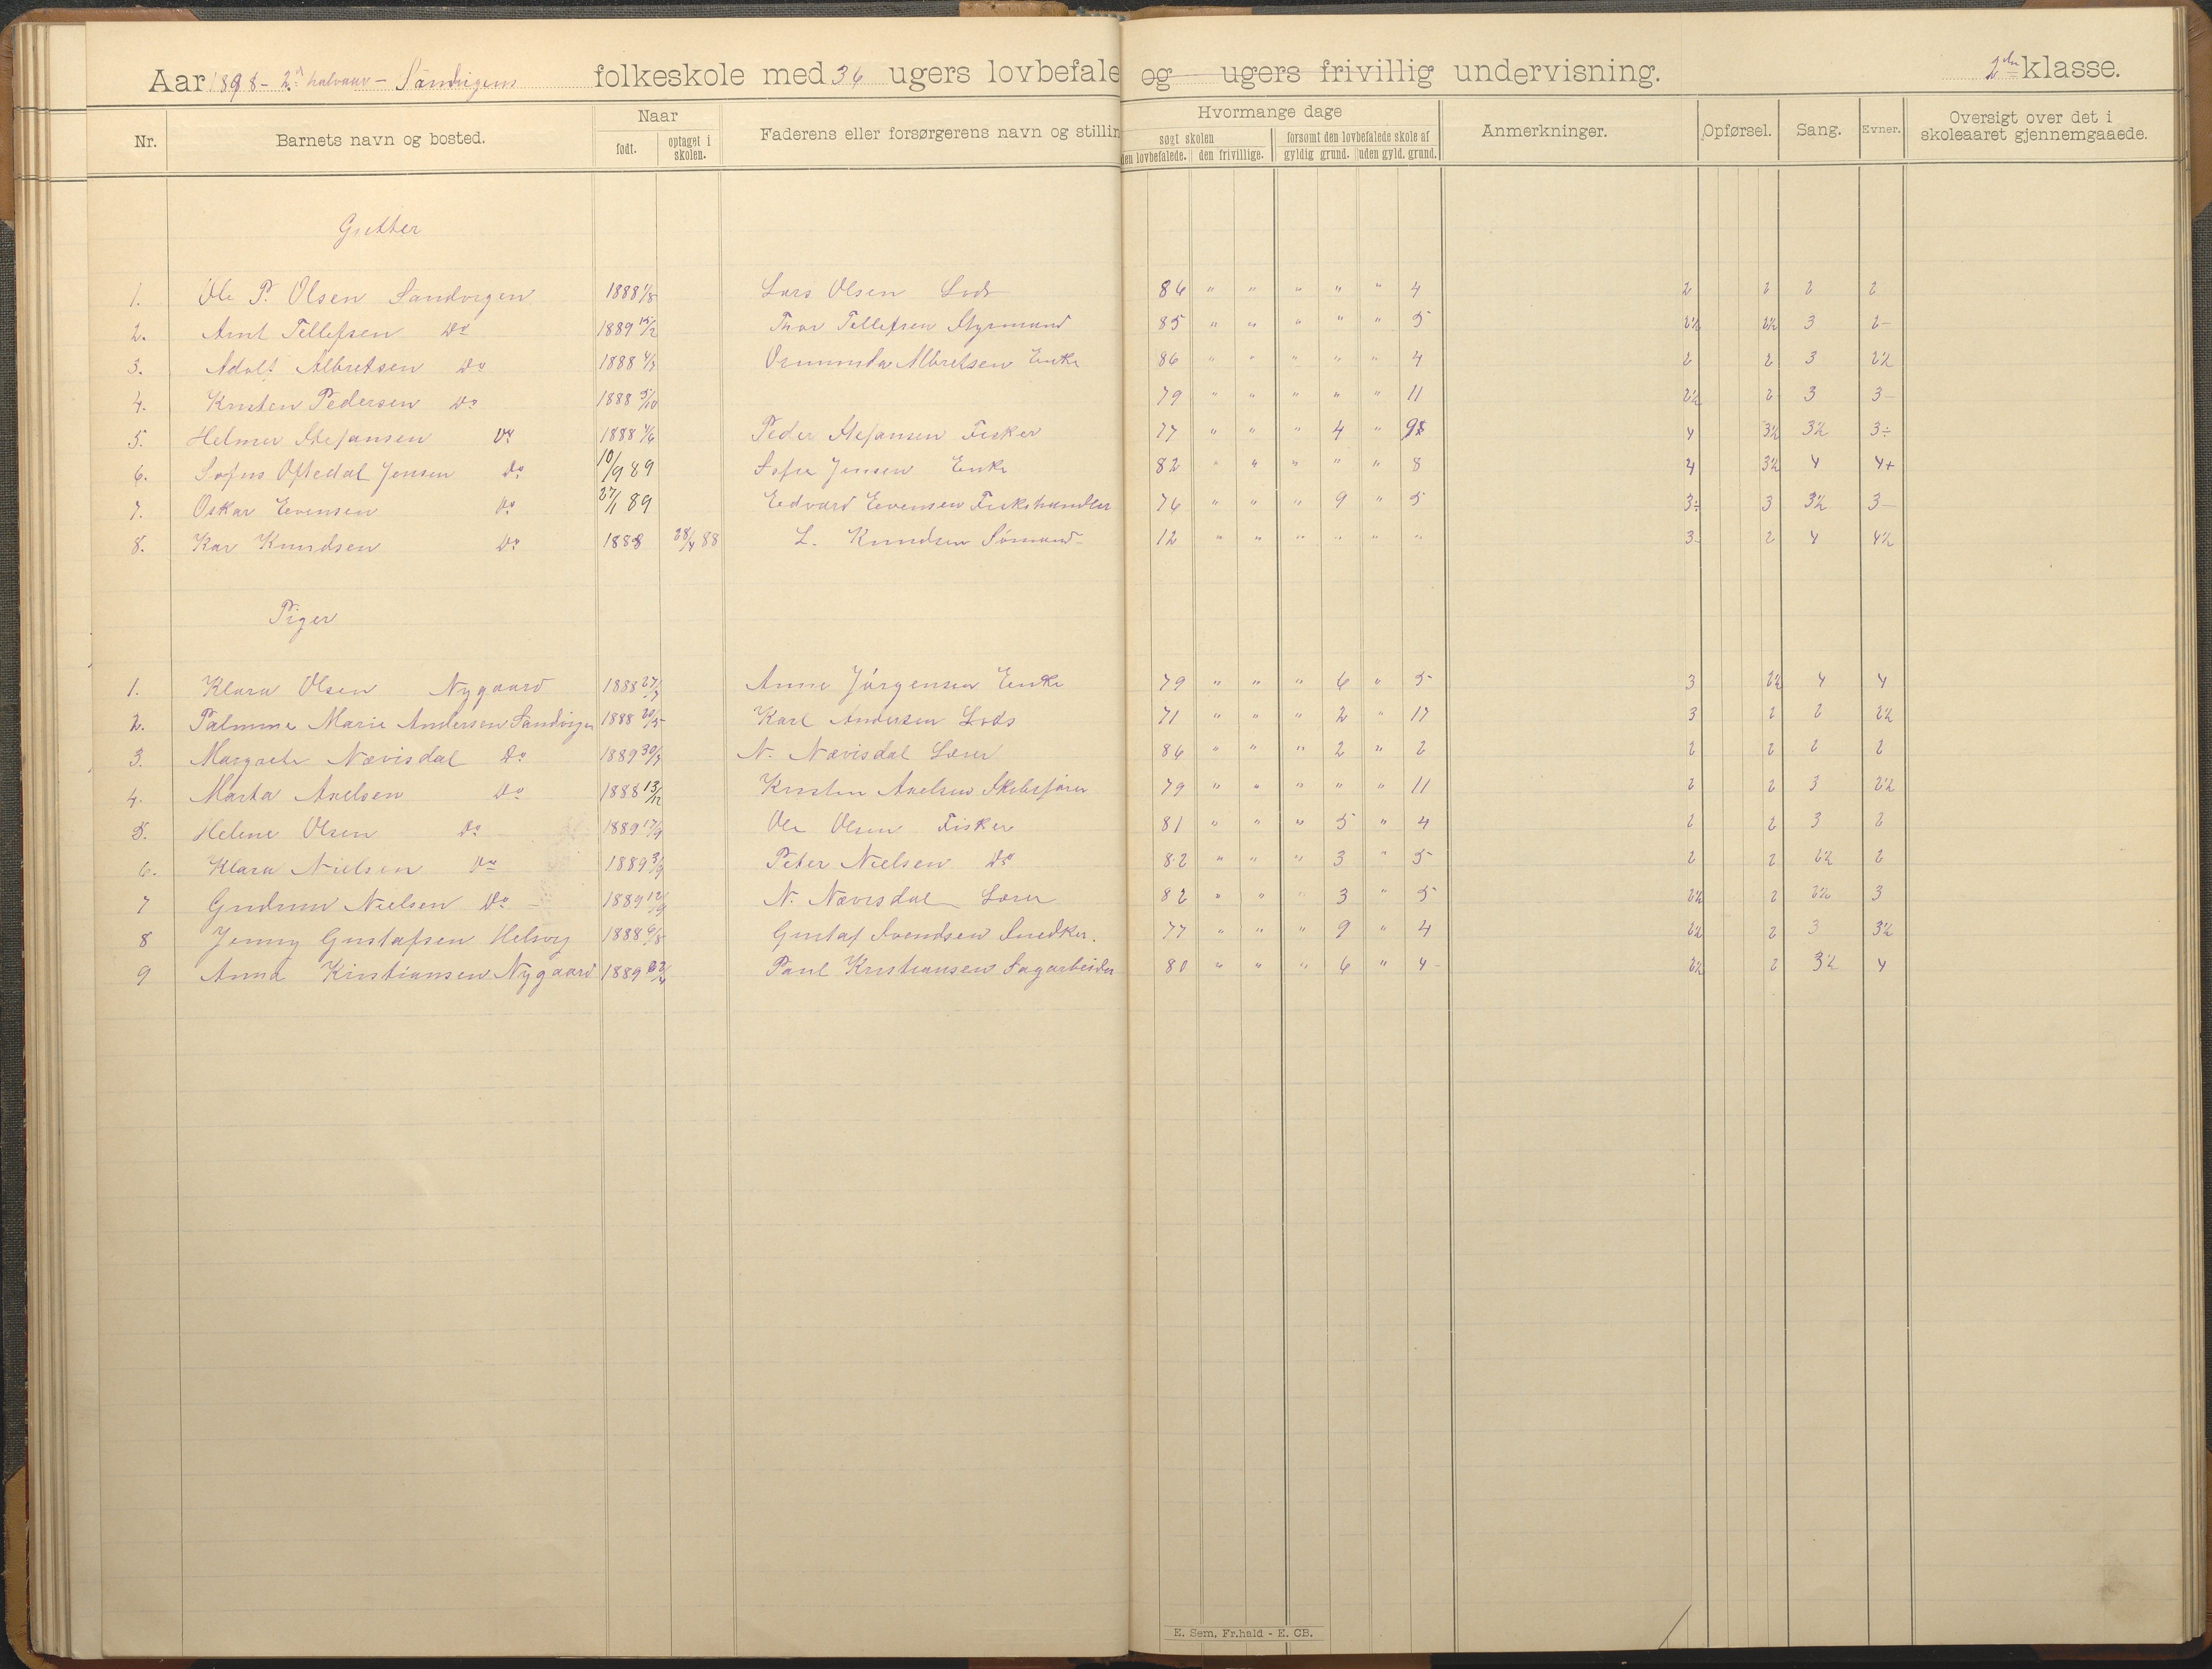 Aar 1898 - 2det halvaar - Sandvigens folkeskole med 36 ugers lovbefale og ugers frivillig undervisning. 2den klasse.
Nr. Barnets navn og bosted. Naar født. optaget i skolen. Faderens eller forsørgerens navn og stillin Hvormange dage søgt skolen den lovbefalede. den frivillige. forsømt den lovbefalede skole af gyldig grund. uden gyld. grund. Anmerkninger. Opførsel. Sang. Evner. Oversigt over det i skoleaaret gjennemgaaede.
Gutter
1. Ole P. Olsen Sandvigen 1888 1/8 Lars Olsen Lods 86 " " " " " 4 2 2 2 2
2. Arnt Tellefsen Do 1889 15/2 Thor Tellefsen Styrmand 85 " " " " " 5 2½ 2½ 3 2-
3. Adolf Albretsen Do 1888 4/7 Osmunda Albretsen Enke 86 " " " " " 4 2 2 3 2½
4. Kristen Pedersen Do 1888 5/10 79 " " " " " 11 2½ 2 3 3-
5. Helmer Stefansen Do 1888 4/6 Peder Stefansen Fisker 77 " " " 4 " 9 4 3½ 3½ 3÷
6. Sofus Oftedal Jensen Do 10/9 89 Sofie Jensen Enke 82 " " " " " 8 4 3½ 4 4+
7. Oskar Evensen Do 27/1 89 Edvard Evensen Fiskehandler 76 " " " 9 " 5 3÷ 3 3½ 3-
8. Kar Knudsen Do 1888 28/4 88 L. Knudsen Sømand 12 " " " " " " 3- 2 4 4½
Piger
1. Klara Olsen Nygaard 1888 27/7 Anne Jørgensen Enke 79 " " " 6 " 5 3 2½ 4 4
2. Palmine Marie Andersen Sandvigen 1888 20/5 Karl Andersen Lods 71 " " " 2 " 17 3 2 2 2½
3. Margrete Nævisdal Do 1889 30/7 N. Nævisdal Lærer 86 " " " 2 " 2 2 2 2 2
4. Marta Axelsen Do 1888 13/12 Kristen Axelsen Skibsfører 79 " " " " " 11 2 2 3 2½
5. Helene Olsen Do 1889 17/9 Ole Olsen Fisker 81 " " " 5 " 4 2 2 3 2
6. Klara Nielsen Do 1889 3/9 Peter Nielsen Do 82 " " " 3 " 5 2 2 2½ 2
7 Gudrun Nielsen Do 1889 12/9 N. Nævisdal Lærer 82 " " " 3 " 5 2½ 2 2½ 3
8 Jenny Gustafsen Helsvig 1888 6/8 Gustaf Svendsen Snedker. 77 " " " 9 " 4 2½ 2 3 3½
9 Anna Kristiansen Nygaard 1889 Paul Kristiansen Sagarbeider 80 " " " 6 " 4 2½ 2 3½ 4
E. Sem, Fr.hald - E. CB.